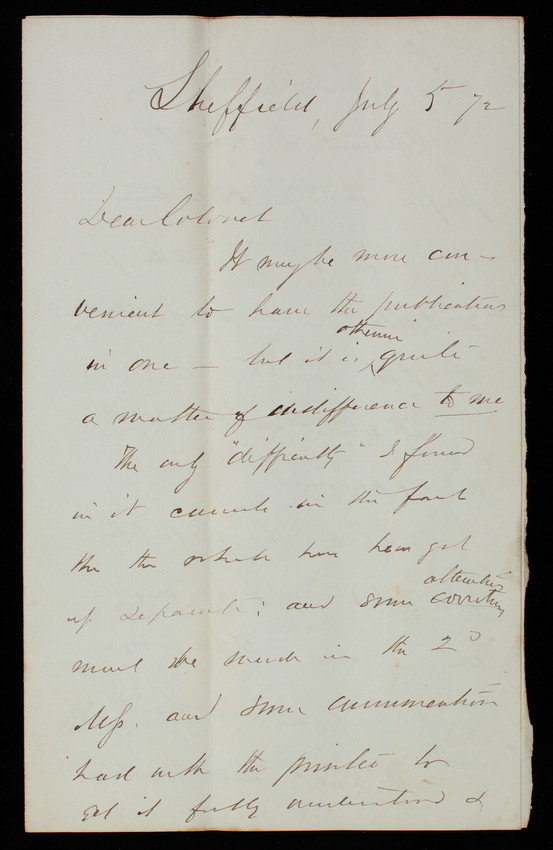 Sheffield, July 5 72
Dear Colonel
It may be more con-
venient to have the publications
in one - but it is otherwise quite
a matter of indifference to me
The only "difficulty" I found
in it in the fact
the the whole have been got
up separate: and some alteration
must be made in the 2d
Mss. and some communication
had with the printer to
get it fully understood &